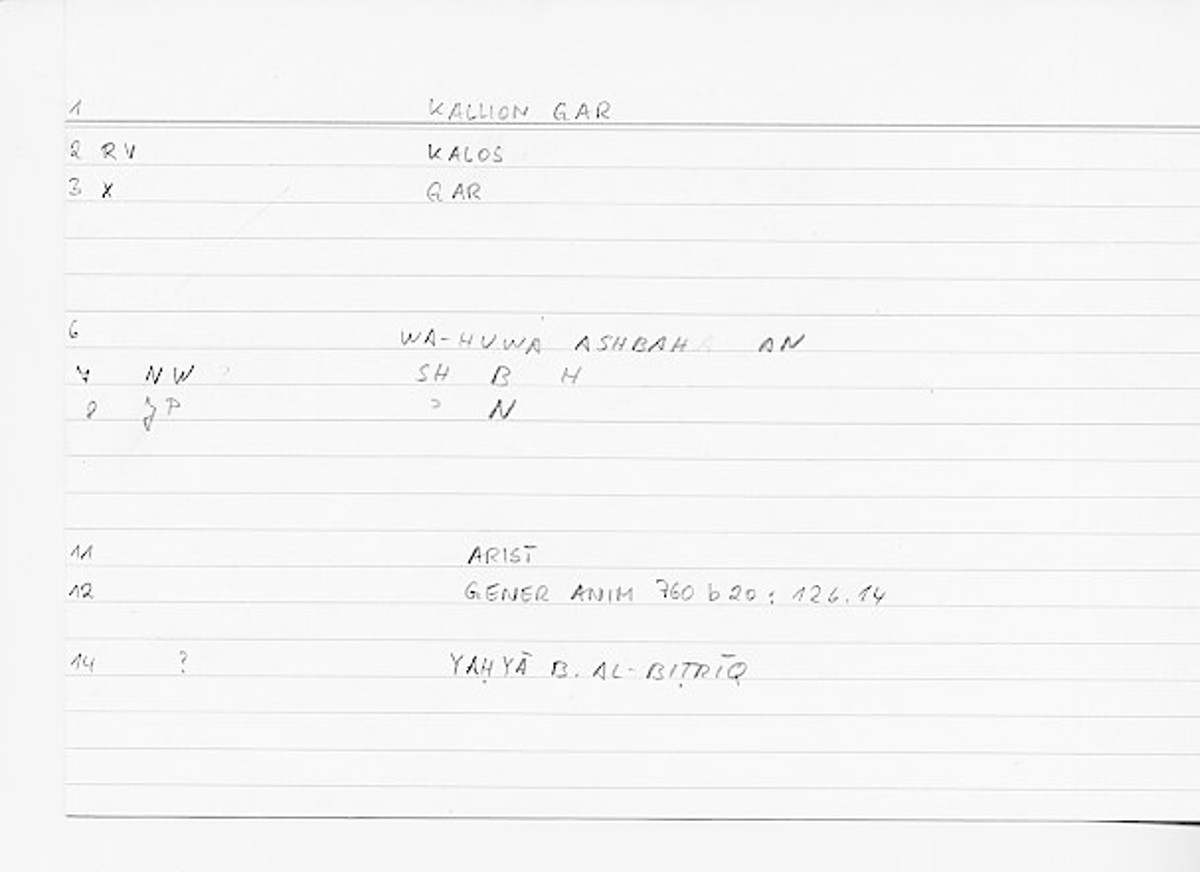 1 KALLION GAR
2 RV KALOS
3 X GAR
6 WA-HUWA ASHBAHA AN
7 NW SH B H
8 JP ɔ N
11 ARIST
12 GENER ANIM 760 b 20 : 126.14
14 ? YAḤYĀ B. AL-BIṬRĪQ